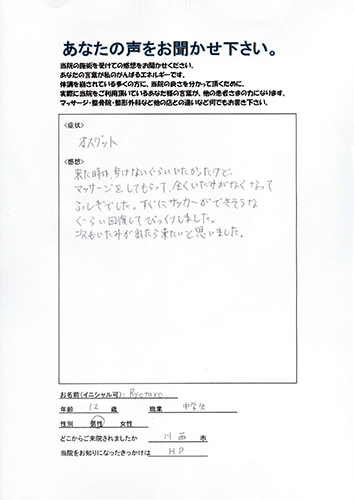 あなたの声をお聞かせ下さい。
当院の施術を受けての感想をお聞かせください。
あなたの言葉が私のがんばるエネルギーです。
体調を崩されている多くの方に、当院の良さを分かって頂くために、
実際に当院をご利用頂いているあなた様の言葉が、他の患者さまの力になります。
マッサージ・整骨院・整形外科など他の店との違いなど何でもお書き下さい。
<症状>
オスグット
<感想>
来た時は、歩けないぐらいいたかったけど、
マッサージをしてもらって、全くいたみがなくなって
ふしぎでした。すぐにサッカーができそうな
ぐらい回復してびっくりしました。
次もいたみが出たら来たいと思いました。
お名前(イニシャル可): Ryotaro
年齢 12 歳 職業 中学生
性別 男性 女性
どこからご来院されましたか 川西 市
当院をお知りになったきっかけは HP